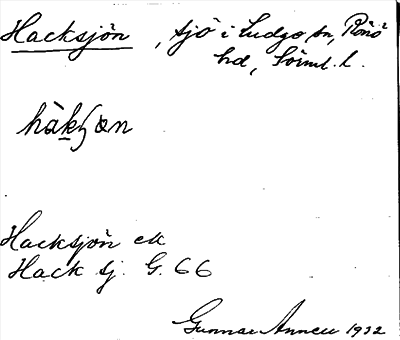 Hacksjön, sjö i Ludgo sn, Rönö
hd, Sörml. l.
Hacksjön ek
Hack sj. G. 66
Gunnar 1932